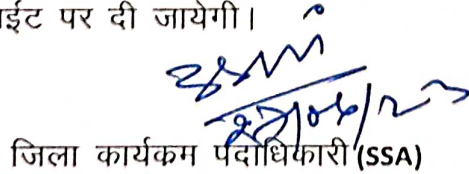 ाईट पर दी जायेगी।
जिला कार्यकम पदाधिकारी (SSA)